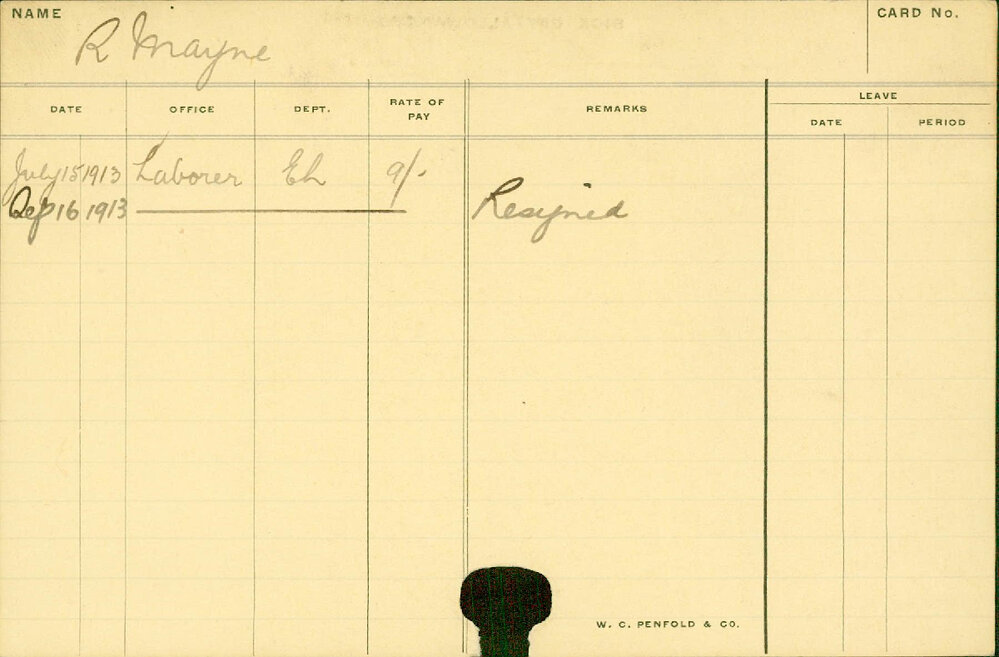 NAME
CARD No.
R Mayne
DATE
OFFICE
DEPT.
RATE OF PAY
REMARKS
LEAVE
DATE
PERIOD
July 15 1913 Laborer Eh 9/-
Sep 16 1913 Resigned
W. C. PENFOLD & CO.